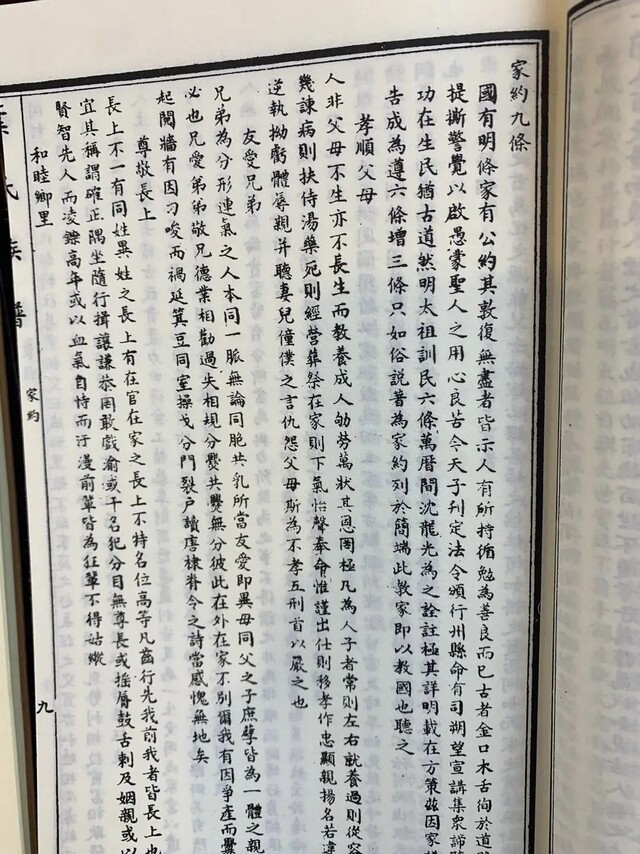 家約九條
國有明條家有公約其敦復無盡者皆示人有所持循勉為善良而已古者金口木舌徇於道路
提撕警覺以啟愚蒙聖人之用心良苦今天子刊定法令頒行州縣命有司朔望宣講集眾諦聽
功在生民猶古道然明太祖訓民六條萬曆間沈龍光為之詮註極其詳明載在方策茲因家譜
告成為遵六條增三條只如俗說著為家約列於簡端此教家即以教國也聽之
孝順父母
人非父母不生亦不長生而教養成人劬勞萬狀其恩罔極凡為人子者常則左右就養過則從容
幾諫病則扶侍湯藥死則經營葬祭在家則下氣怡聲奉命惟謹出仕則移孝作忠顯親揚名若違
逆執拗虧體辱親并聽妻兒僮僕之言仇怨父母斯為不孝五刑首以嚴之也
友愛兄弟
兄弟為分形連氣之人本同一脈無論同胞共乳所當友愛即異母同父之子庶孽皆為一體之親
必也兄愛弟弟敬兄德業相勸過失相規分爨共爨無分彼此在外在家不別爾我有因爭產而釁
起鬩牆有因刁唆而禍延箕豆同室操戈分門裂戶讀唐棣脊令之詩當感愧無地矣
尊敬長上
長上不一有同姓異姓之長上有在官在家之長上不特名位高等凡齒行先我前我者皆長上也
宜其稱謂確正隅坐隨行揖讓謙恭罔敢戲渝或干名犯分目無尊長或搖脣鼓舌刺及姻親或以
賢智先人而凌鑠高年或以血氣自恃而汙漫前輩皆為狂葷不得姑縱
和睦鄉里
氏族譜
家約
九